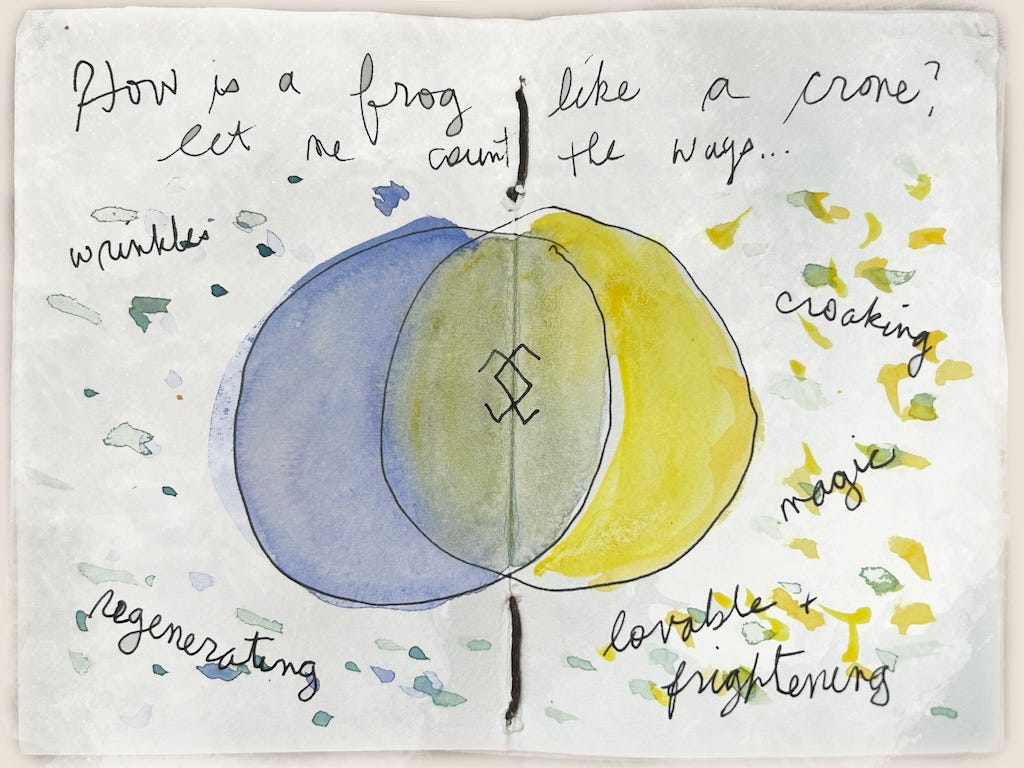 How is a frog like a crone?
let me count the ways...
wrinkles
croaking
magic
regenerating
lovable +
frightening